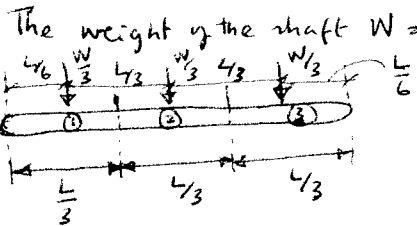 The weight of the shaft W =
L/6 W/3 L/3 W/3 L/3 W/3 L/6
1 2 3
L/3 L/3 L/3